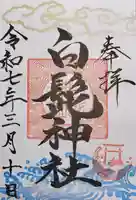 奉拝
白髭神社
令和七年三月十日